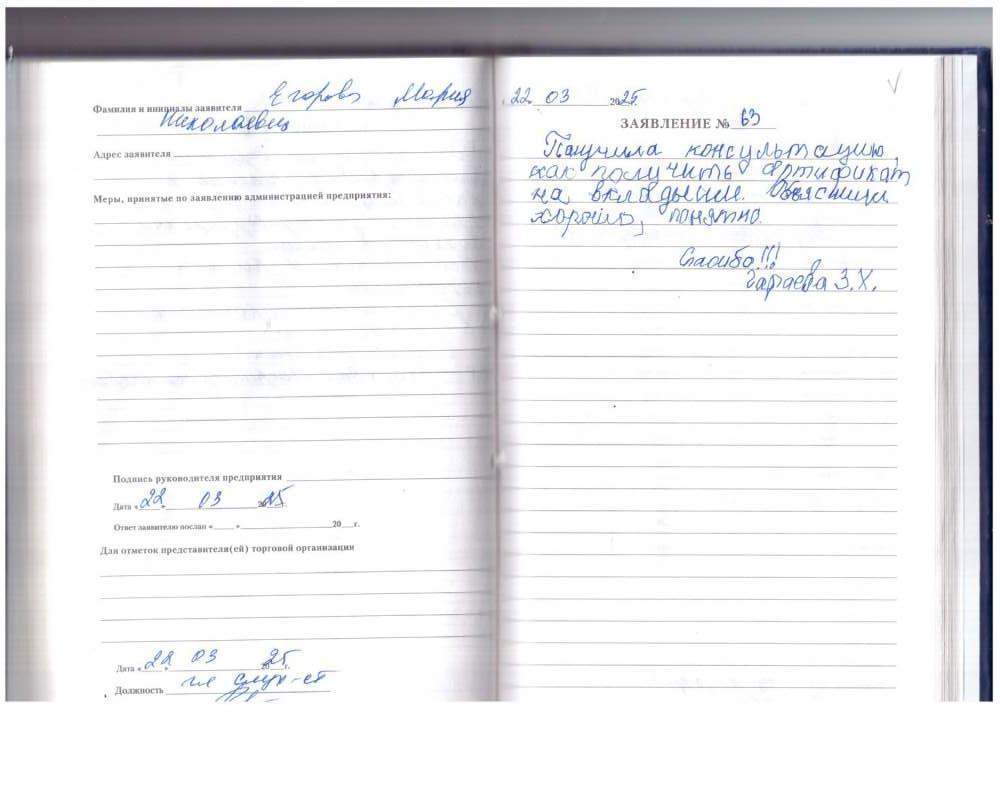 Фамилия и инициалы заявителя Егорова Мария
Николаевна
Адрес заявителя
Меры, принятые по заявлению администрацией предприятия:
Подпись руководителя предприятия
Дата «22» 03 2025
Ответ заявителю послан «___» 20__г.
Для отметок представителя(ей) торговой организации
Дата «22» 03 2025г.
Должность
22 03 2025
ЗАЯВЛЕНИЕ № 63
Получила консультацию,
как получить сертификат
на вкладыши. Объяснили
хорошо, понятно.
Спасибо!!!
Гараева З.Х.